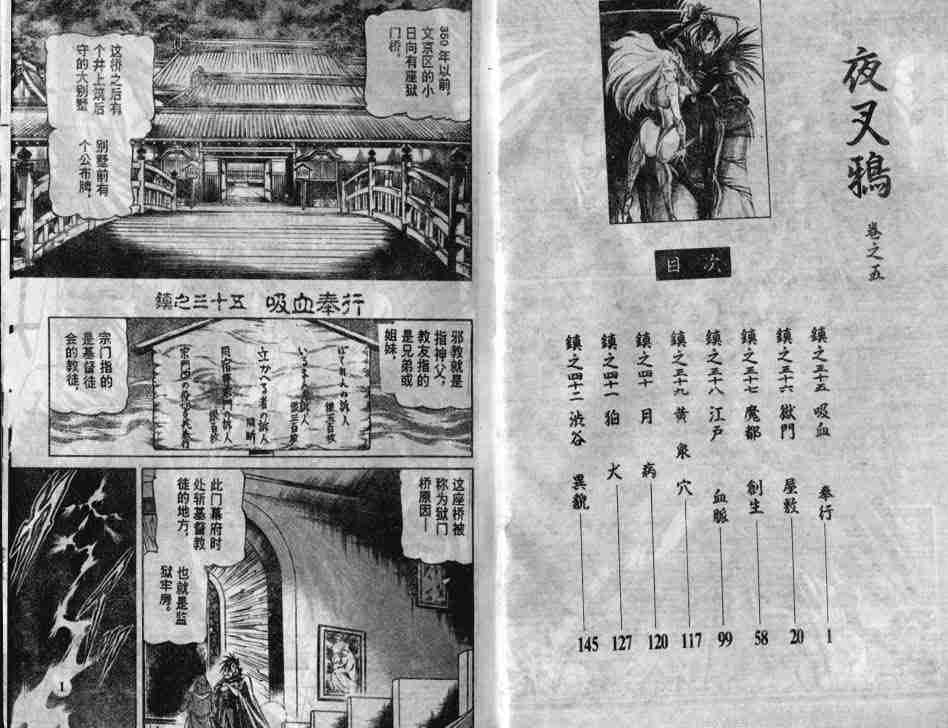 夜叉鴉
卷之五
目次
鎮之三十五 吸血奉行 1
鎮之三十六 獄門屋敷 20
鎮之三十七 魔都創生 58
鎮之三十八 江戸血脈 99
鎮之三十九 黄泉穴 117
鎮之四十 月病 120
鎮之四十一 狛犬 127
鎮之四十二 渋谷異貌 145
350年以前,
文京区的小
日向有座獄
门桥。
这桥之后有
个井上筑后
守的大别墅
别墅前有
个公布牌,
鎮之三十五 吸血奉行
邪教就是
指神父,
教友指的
是兄弟或
姐妹,
宗门指的
是基督徒
会的教徒,
这座桥被
称为獄门
桥原因—
此门幕府时
处斩基督教
徒的地方,
也就是监
獄牢房。
1